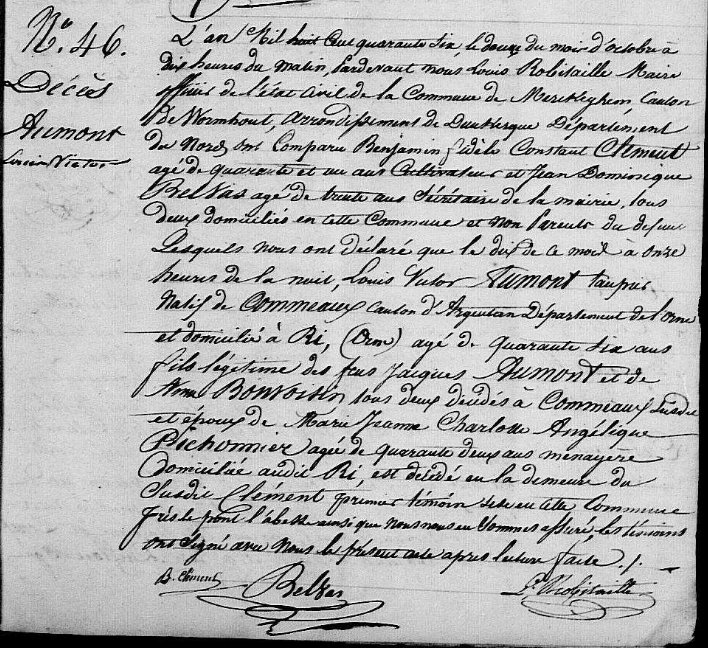 N.º 46.
Décès
Aumont
Louis Victor
L'an Mil huit Cent quarante six, le douze du mois d'octobre à
dix heures du matin, pardevant nous Louis Robitaille Maire
officier de l'état Civil de la Commune de Merckeghem, Canton
de Wormhout, arrondissement de Dunkerque Département
du Nord, ont Comparu Benjamin fidèle Constant Clement
agé de quarante et un ans Cultivateur et Jean Dominique
Belvas agé de trente ans Sécrétaire de la mairie, tous
deux domiciliés en cette Commune et non parents du defunt
Lesquels nous ont déclaré que le dix de ce mois à onze
heures de la nuit, Louis Victor Aumont taupier
natif de Commeaux Canton d'Argentan Département de l'orne
et domicilié à Ri, (Orne) agé de quarante six ans
fils légitime des feus Jacques Aumont et de
Anne Bonvoisin tous deux décédés à Commeaux susdit
et époux de Marie Jeanne Charlotte Angélique
Pichonnier agée de quarante deux ans menagère
Domiciliée audit Ri, est décédé en la demeure du
Susdit Clément premier témoin sise en cette Commune
près le pont l'abesse ainsi que nous nous en sommes assuré, les témoins
ont signé avec nous le présent acte après lecture faite ./.
B. Clément Belvas L. Robitaille